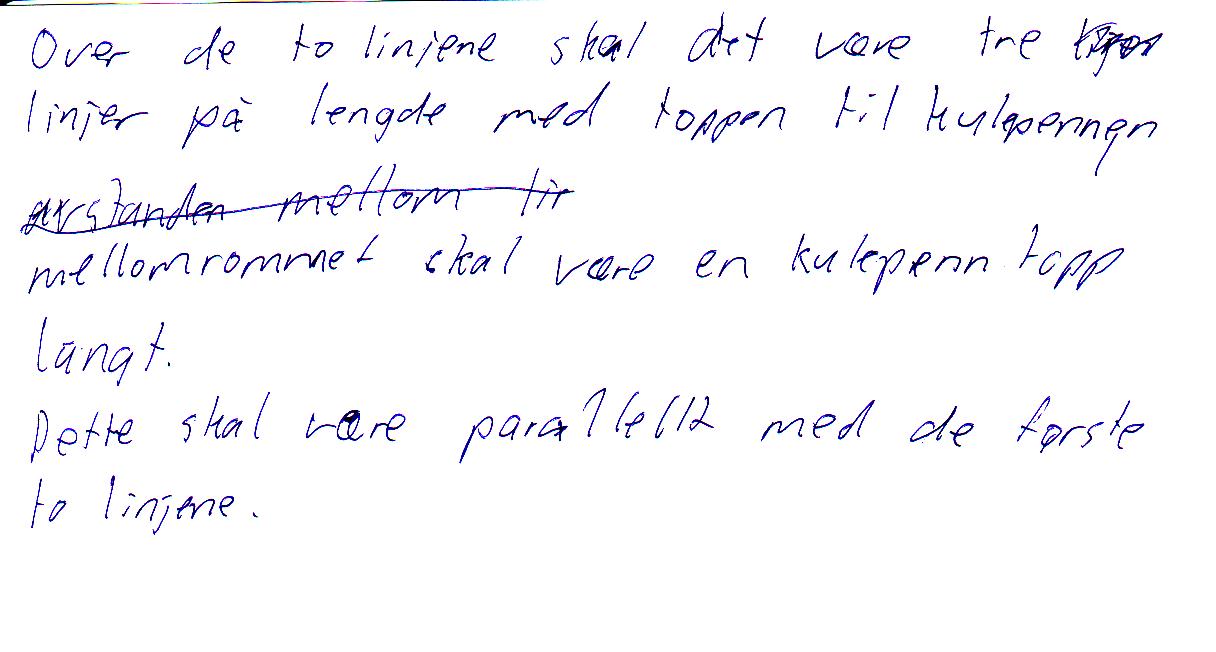 Over de to linjene skal det være tre
linjer på lengde med toppen til kulepennen
avstanden mellom
mellomrommet skal være en kulepenn topp
langt.
Dette skal være parallellt med de første
to linjene.